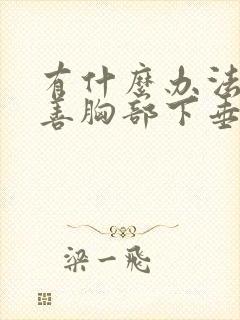 有什麼办法
善胸部下垂
梁一飛